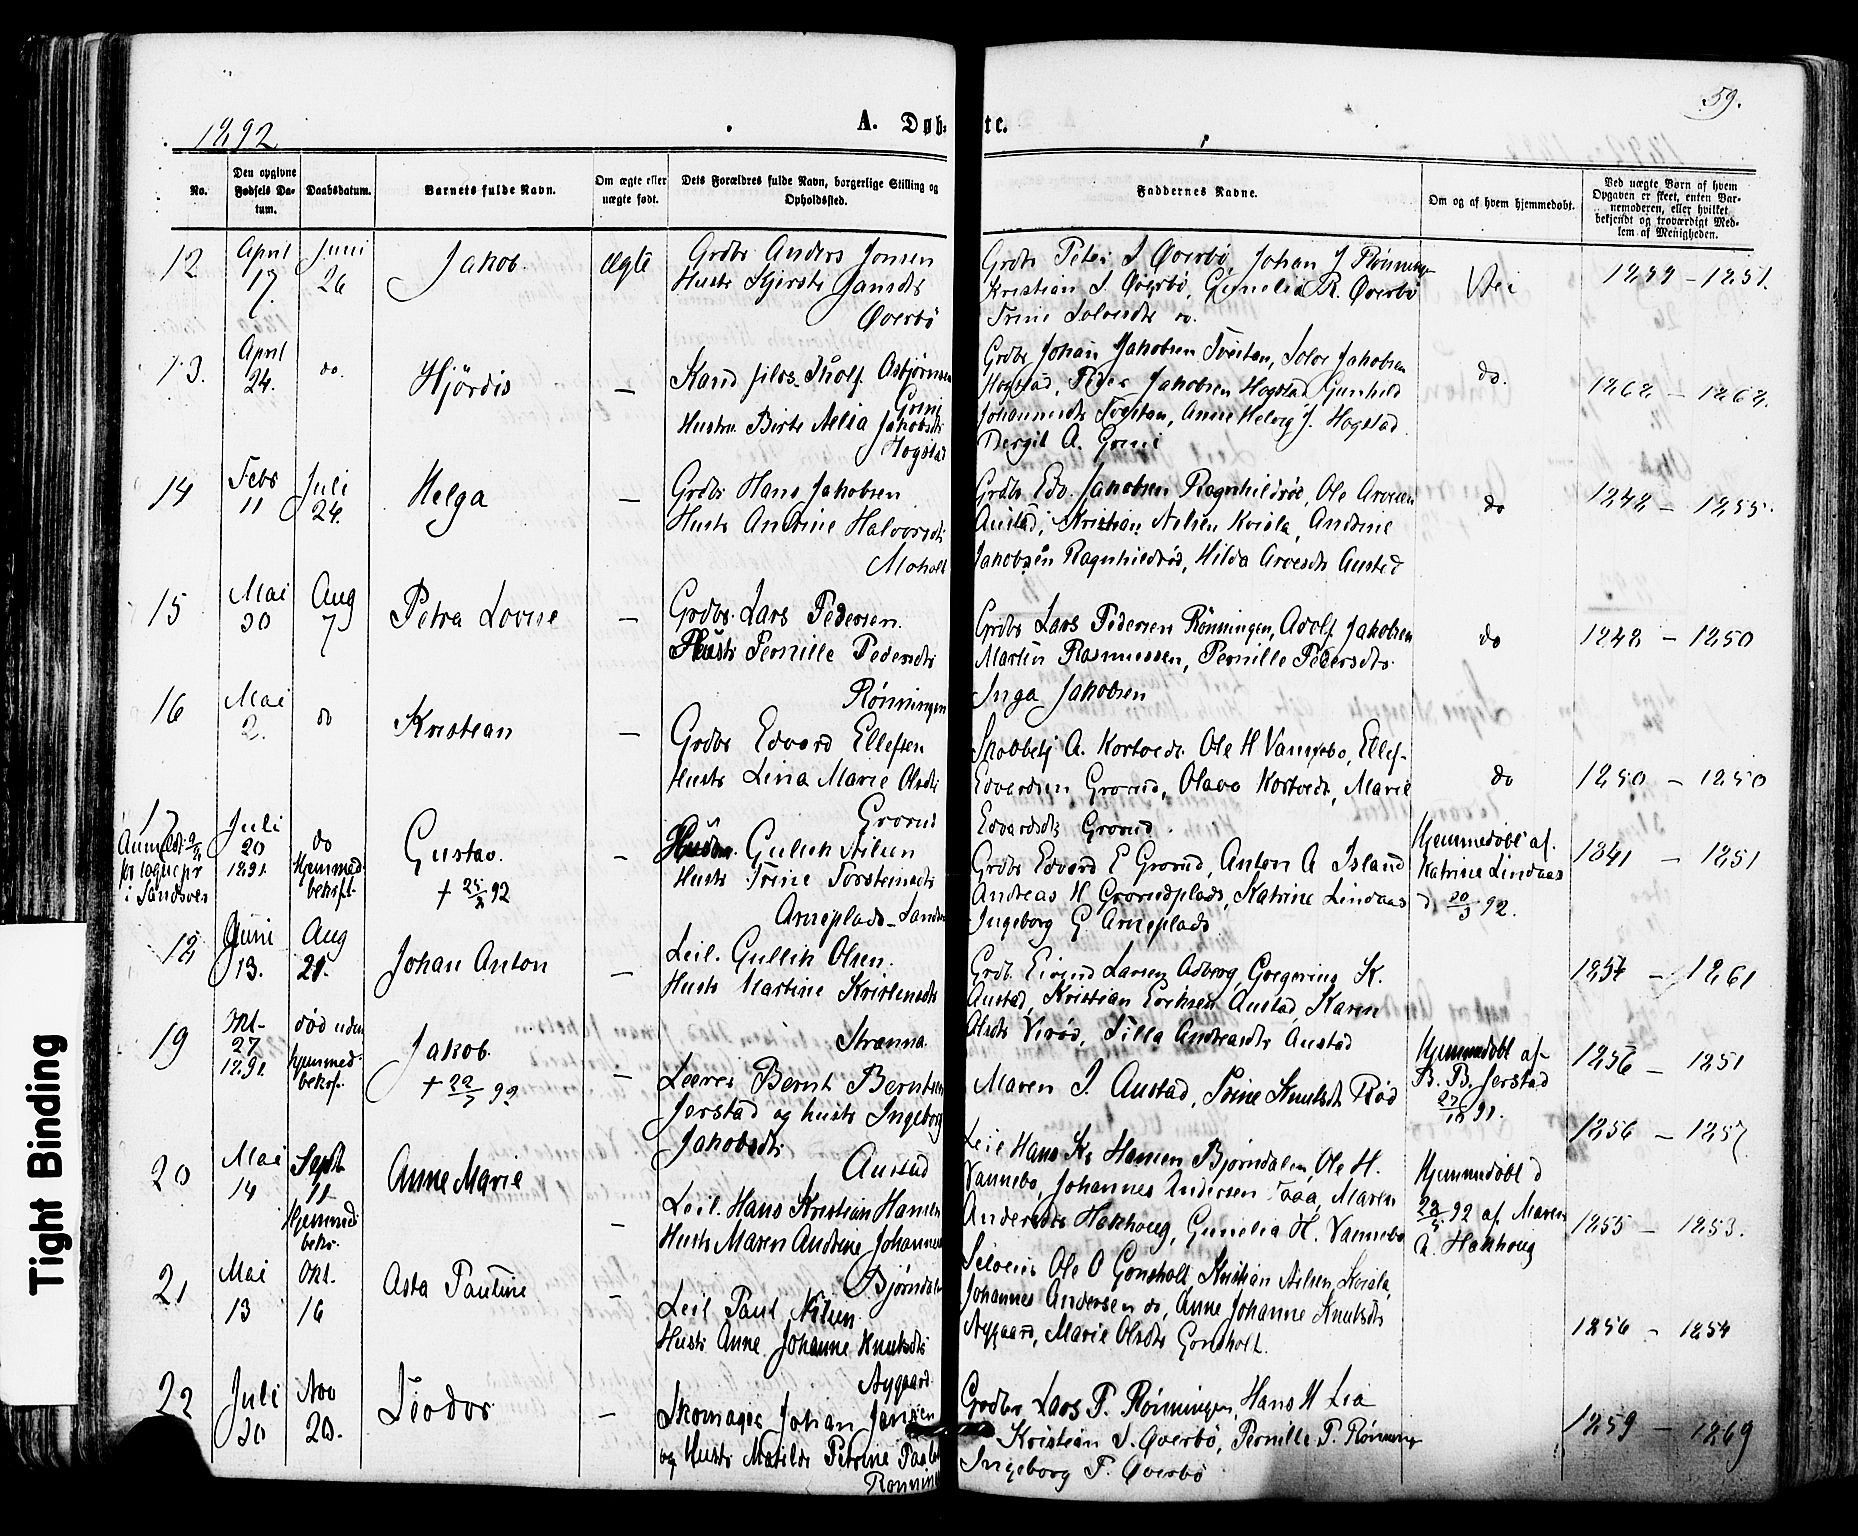 59.
1892
A. Døb-
te.
No.
Den opgivne Fødsels Da-tum.
Daabsdatum.
Barnets fulde Navn.
Om ægte eller uægte født.
Dets Forældres fulde Navn, borgerlige Stilling og Opholdssted.
Faddernes Navne.
Om og af hvem hjemmedøbt.
Ved uægte Børn af hvem Opgaven er skeet, enten Bar-nemoderen, eller hvilket bekjendt og troværdigt Med-lem af Menigheden.
12
April 17.
Juni 26
Jakob.
ægte
Grdbr Anders Jonsen
Hustr Kjersti Jansdtr
Øverbö
Grdbr Peter J Øverbö, Johan J Rönningen
Kristian J. Øverbö, Gunelia R. Øverbö
Trine Solvesdtr do.
Nei
1849 - 1851.
13.
April 24.
do.
Hjördis
—
Kand. filos. Tholf Asbjörnsen
Grini
Hustru Birte Aelia Jakobsdtr
Hogstad
Grdbr Johan Jakobsen Tveitan, Solve Jakobsen
Hogstad, Peder Jakobsen Hogstad Gunhild
Johannesdtr Tveitan, Anne Helvig J. Hogstad
Bergit A. Grini
do.
1868 - 1868.
14
Febr 11
Juli 24.
Helga
—
Grdbr Hans Jakobsen
Hustr Andrine Halvorsdtr
Moholt
Grdbr Edv. Jakobsen Ragnhildröd, Ole Arvesen
Austad, Kristian Nilsen Kvisla, Andrine
Jakobsen Ragnhildröd, Hilda Arvesdtr Austad
do
1848 - 1855.
15
Mai 30
Aug 7
Petra Lovise
—
Grdbr. Lars Pedersen.
Hustr Pernille Pedersdtr
Rönningen
Grdbr Lars Pedersen Rönningen, Adolf Jakobsen
Martin Rasmussen, Pernille Pedersdtr.
Inga Jakobsen
do
1848 - 1850
16
Mai 2.
do
Kristian
—
Grdbr Edvard Ellefsen
Hustr Lina Marie Olsdtr
Grorud
A. Kortvedt. Ole H Vannebo, Ellef
Edvardsen Grorud, Olava Kortvedt, Marie
Edvardsdtr Grorud.
do
1850 - 1850
17
i Sandsvær
Juli 20 1891.
do
Hjemmed. bekræft.
Gustav.
+ 92
—
Gullik Nilsen
Hustr Trine Torsteinsdtr
Arneplads - Sandsv
Grdbr Edvard E Grorud, Anton A Island
Andreas H Grorudplads, Katrine Lindaas
Ingeborg G Arneplads.
Hjemmedøbt af.
Katrine Lindaas
d 20/3 92.
1841 - 1851
18
Juni 13.
Aug 21.
Johan Anton
—
Leil. Gullik Olsen.
Hustr Martine Kristensdtr
Stranna.
Grdb. Eivind Larsen Adberg, Gregerius K.
Austad, Kristian Eriksen Austad, Karen
Olsdtr Viröd, Tilla Andreasdtr Austad
1854 - 1861
19
Okt- 27 1891
död uden
hjemmed-
bekræf.
Jakob.
+ 92
—
Bernt Berntsen
Jerstad og hustr Ingeborg
Jakobsdtr
Austad
Maren J. Austad, Trine Knutsdtr Röd
Hjemmedøbt af
B. B. Jerstad
91.
1856 - 1851
20
Mai 14
Sept 11
Hjemmed
bekr.
Anne Marie
—
Leil. Hans Kristian Hansen
Hustr Maren Andrine Johannes
Bjørndalen
Leil Hans Kr Hansen Bjørndalen, Ole H.
Vannebo, Johannes Andersen Maren
Andersdtr Hakhoug, Gunelia H. Vannebo
Hjemmedøbt d
92 af Maren
A. Hakhoug
1856 - 1857.
21
Mai 13
Okt. 16
Asta Pauline
—
Leil Paul Nilsen
Hustr Anne Johanne Knutsdtr
Nygaard.
Selveier Ole O Gonsholt Kristian Nilsen Kvisla,
Johannes Andersen do, Anne Johanne Knutsdtr
Nygaard, Marie Olsdtr Gonsholt.
1855 - 1853.
1856 - 1854
22
Juli 30
Nov 20.
Teodor
—
Skomager Johan Jansen
og Hustr Matilde Petrine
Rönningen
Grdbr Lars P. Rønningen, Hans H Lia
Kristian J. Øverbö, Pernille P. Rönningen
Ingeborg P. Øverbö
1859 - 1869
Tight Binding